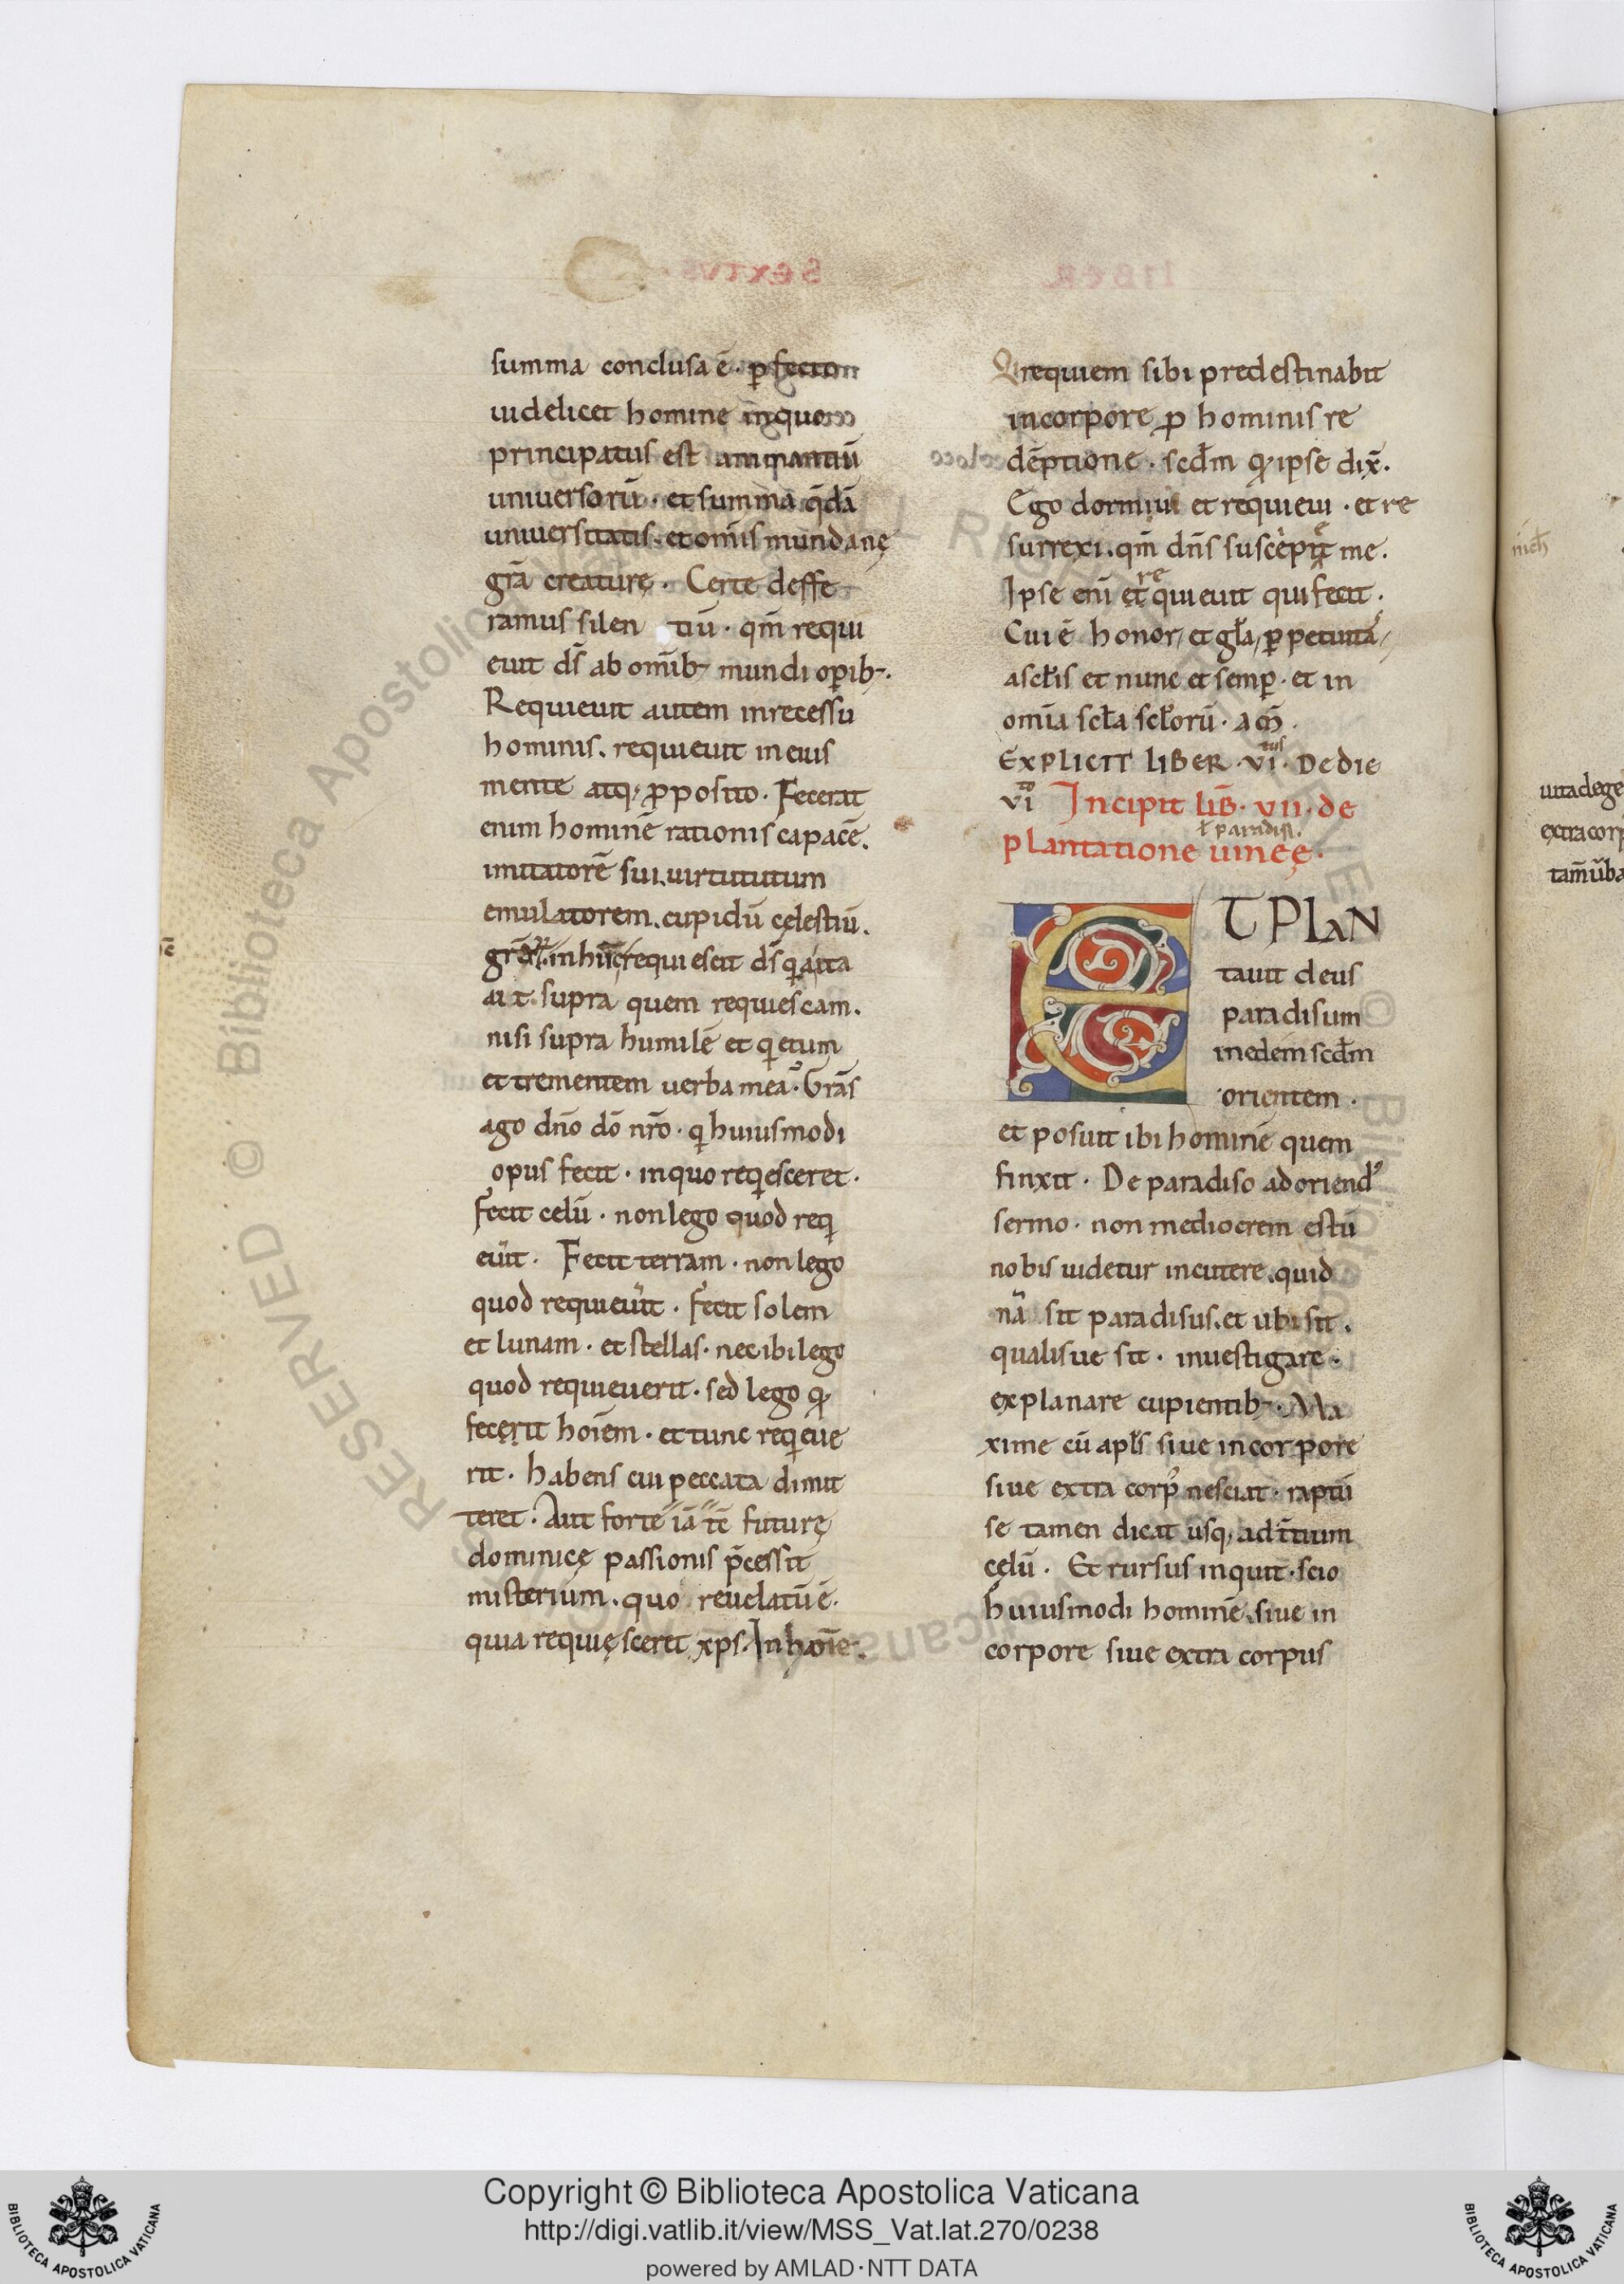 summa conclusa ē · ꝑfecto
uidelicet homine inquo
principatus est animantiū
uniuersorū · et summa q̄dā
uniuersitatis · et om̄is mundanę
gr̄a creaturę · Certe deffe
ramus silen tiū · qm̄ requi
euit ds̄ ab om̄ib; mundi oꝑib; ·
Requieuit autem inrecessu
hominis. requieuit in eius
mente atq; ꝓposito · Fecerat
enim hominē rationis capacē.
imitatorē sui. uirtututum
emulatorem. cupidū cęlestiū.
inh requiescit ds̄ q aita
ait supra quem requiescam.
nisi supra humilē et qietum
et trementem uerba mea · Grās
ago dn̄o dō nr̄o · q huiusmodi
opus fecit · inquo reqiesceret ·
Fecit celū · non lego quod reqi
eūit · Fecit terram · non lego
quod requieuit · fecit solem
et lunam · et stellas · nec ibi lego
quod requieuerit · sed lego qꝫ
fecerit hoīem · et tunc reqieue
rit · habens cui peccata dimit
teret · Aut forte iā tē futurę
dominicę passionis p̄cessit
misterium · quo reuelatū ē ·
quia requięsceret xp̄s · In hoīe ·
requiem sibi predestinabit
incorpore ꝓ hominis re
dēptione · scdm̄ qꝫ ipse dix̄ ·
Ego dormiui et requieui · et re
surrexi · qm̄ dn̄s suscepit me ·
Ipse eni et requieuit qui fecit ·
Cui ē honor, et gła, ꝑpetuita,
aseclis et nunc et semꝑ · et in
om̄ia scła scłorū · am̄ ·
EXPLICIT LIBER · VI tus · De die
VI to Incipit LIB · VII · de
ł paradisi ·
plantatione uineę ·
ET PLAN
tauit deus
paradisum
inedem scdm̄
orientem ·
et posuit ibi hominē quem
finxit · De paradiso adoriend'
sermo · non mediocrem estū
nobis uidetur incutere · quid
nā sit paradisus · et ubi sit ·
qualisue sit · inuestigare ·
explanare cupientib; · Ma
xime cū apls̄ siue incorpore
siue extra corp' nesciat · raptū
se tamen dicat usq; ad t̄tium
cęlū · Et rursus inquit · scio
huiusmodi hominē · siue in
corpore siue extra corpus
uitadege
extra corp
tam̄
RESERVED © Biblioteca Apostolica
Copyright © Biblioteca Apostolica Vaticana
http://digi.vatlib.it/view/MSS_Vat.lat.270/0238
powered by AMLAD·NTT DATA
BIBLIOTECA APOSTOLICA VATICANA
BIBLIOTECA APOSTOLICA VATICANA